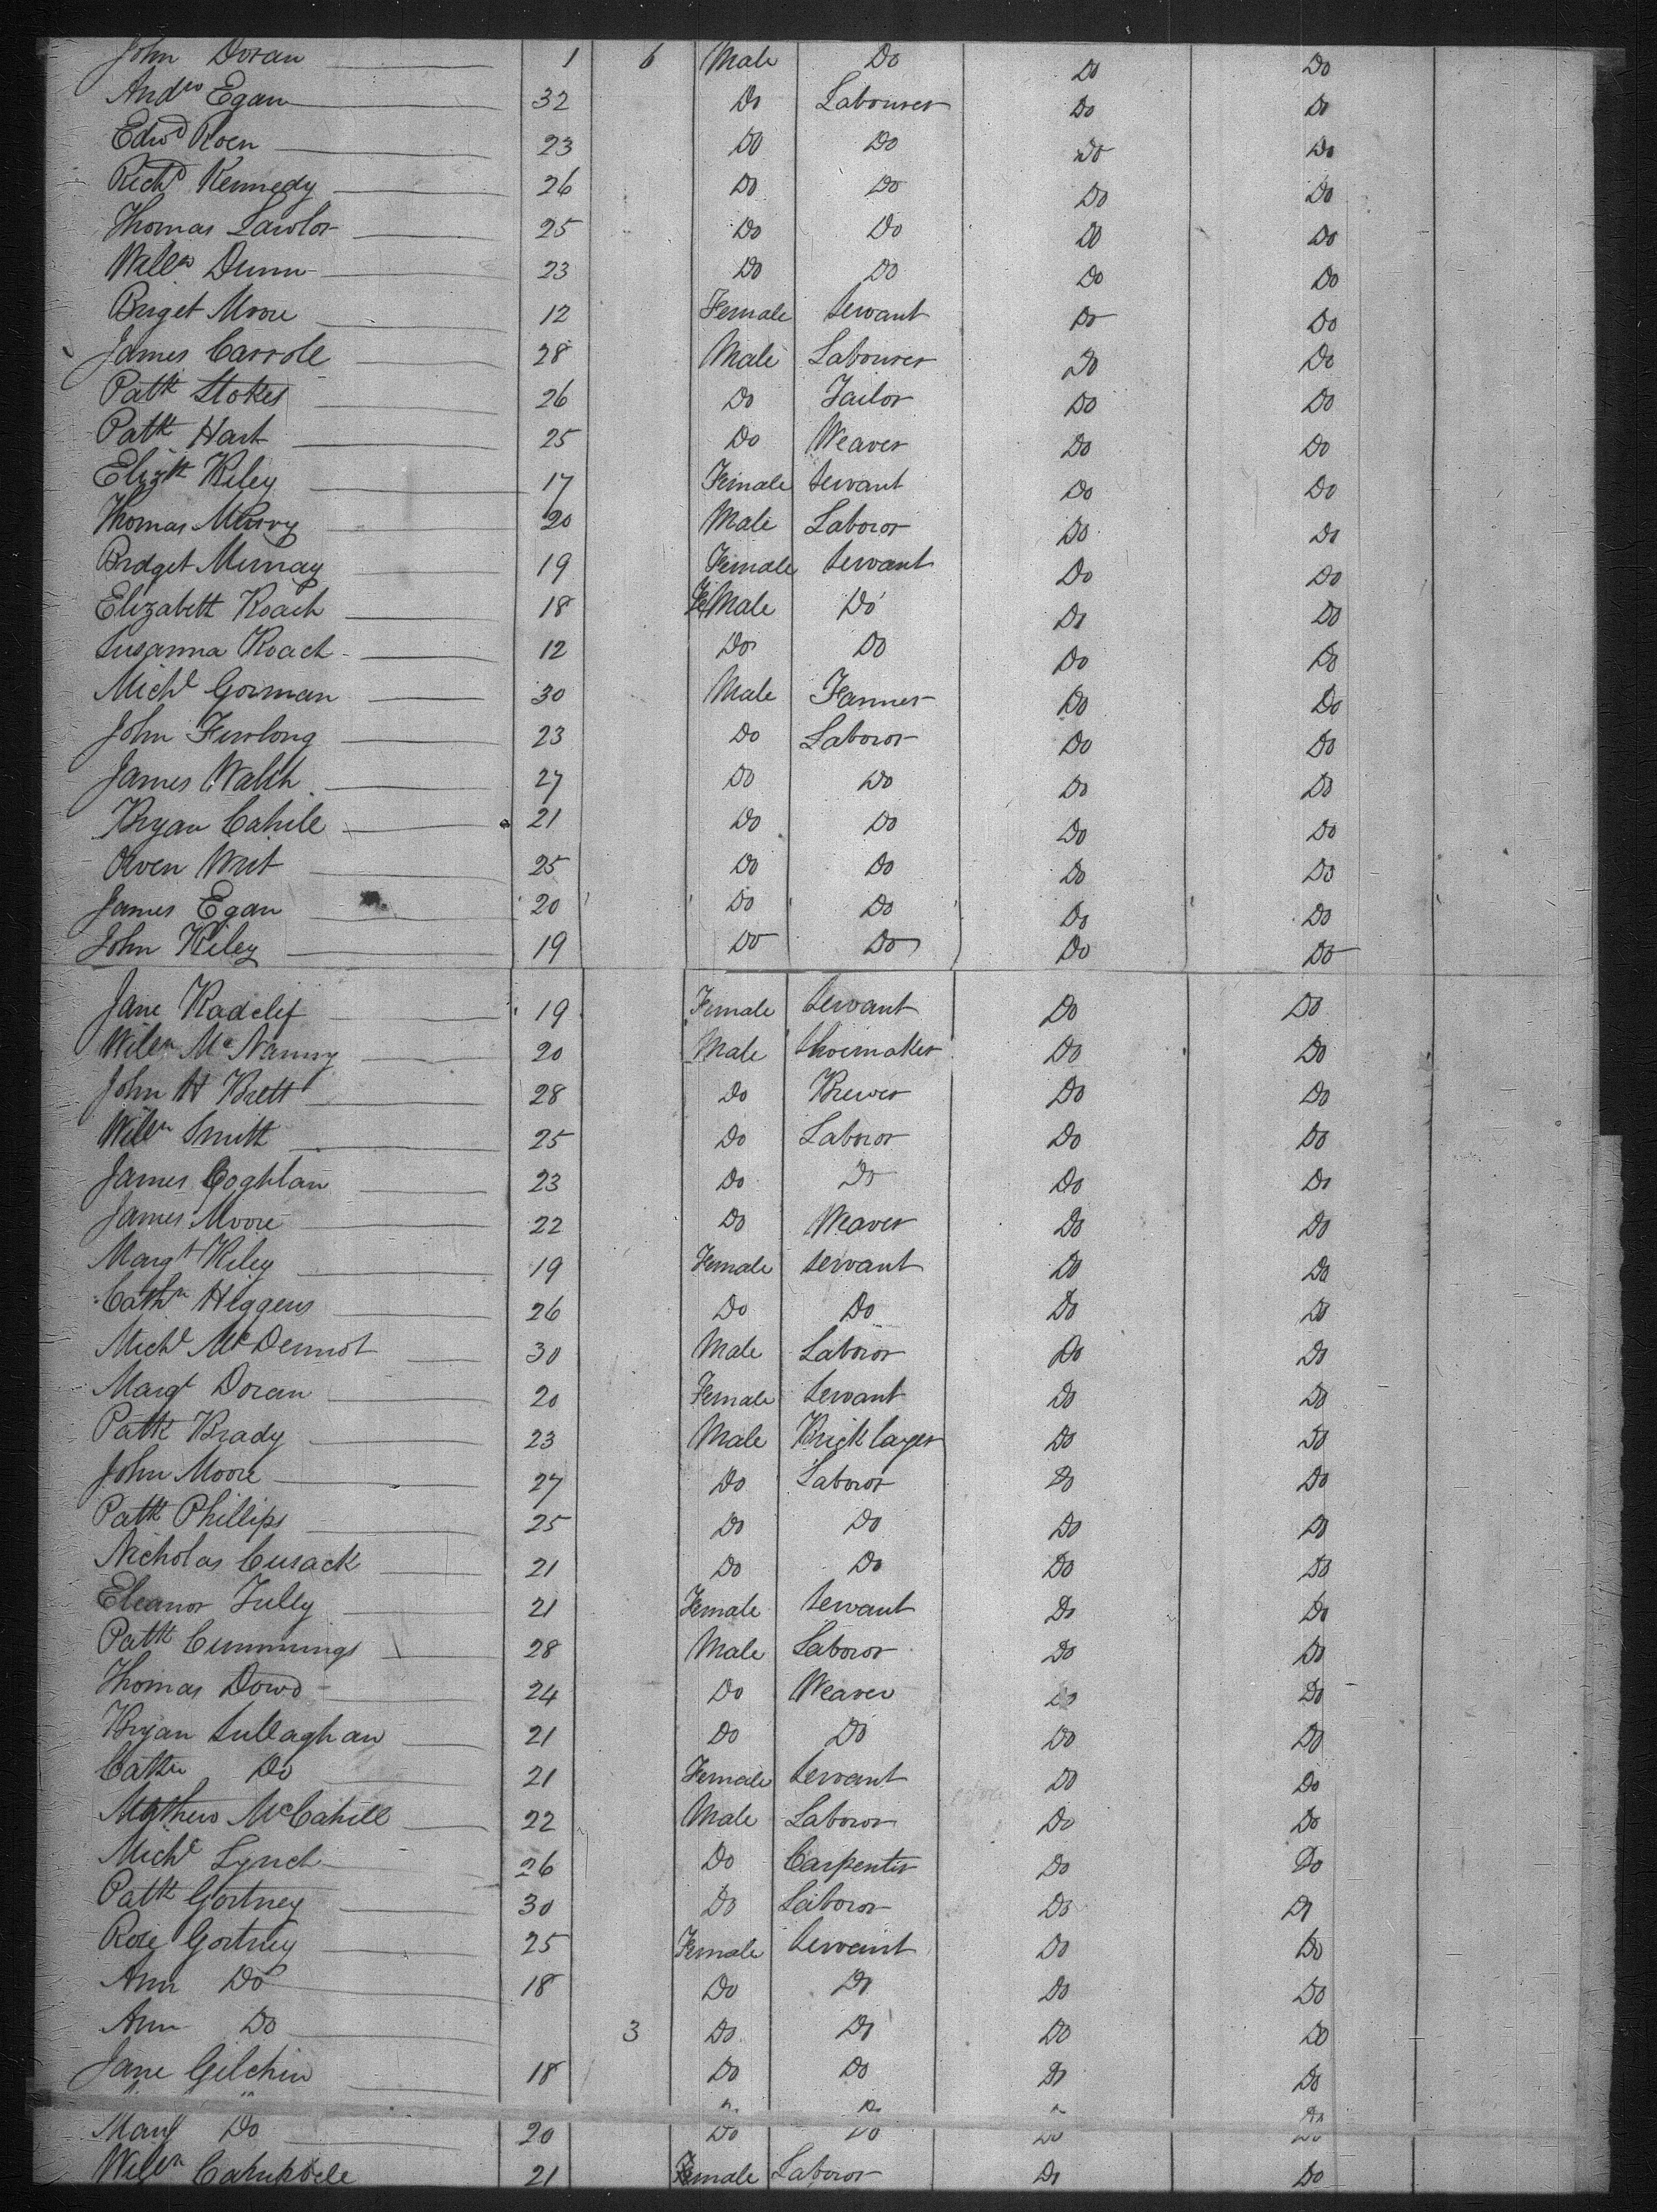 John Doran 1 6 Male Do Do Do
Andw Egan 32 Do Labourer Do Do
Edwd Roen 23 Do Do Do Do
Richd Kennedy 26 Do Do Do Do
Thomas Lawlor 25 Do Do Do Do
Willm Dunn 23 Do Do Do Do
Briget Moore 12 Female Servant Do Do
James Carroll 28 Male Labourer Do Do
Patk Stokes 26 Do Tailor Do Do
Patk Hart 25 Do Weaver Do Do
Elizth Kiley 17 Female Servant Do Do
Thomas 20 Male Laboror Do Do
Bridget Murray 19 Female Servant Do Do
Elizabeth Roach 18 FeMale Do Do Do
Susanna Roach 12 Do Do Do Do
Michl Gorman 30 Male Farmer Do Do
John Furlong 23 Do Laboror Do Do
James Walsh 27 Do Do Do Do
Bryan Cahill 21 Do Do Do Do
Owen 25 Do Do Do Do
James Egan 20 Do Do Do Do
John Kiley 19 Do Do Do Do
Jane Radclif 19 Female Servant Do Do
Willm McNanny 20 Male Shoemaker Do Do
John H Brett 28 Do Brewer Do Do
Willm Smith 25 Do Laboror Do Do
James Coghlan 23 Do Do Do Do
James Moore 22 Do Weaver Do Do
Margt Kiley 19 Female Servant Do Do
Cathn Higgens 26 Do Do Do Do
Michl McDermot 30 Male Laboror Do Do
Margt Doran 20 Female Servant Do Do
Patk Brady 23 Male Brick layer Do Do
John Moore 27 Do Laboror Do Do
Patk Phillips 25 Do Do Do Do
Nicholas Cusack 21 Do Do Do Do
Eleanor Tully 21 Female Servant Do Do
Patk Cummings 28 Male Laboror Do Do
Thomas Dowd 24 Do Weaver Do Do
Bryan Sullaghan 21 Do Do Do Do
Cathn Do 21 Female Servant Do Do
Mathew McCahill 22 Male Laboror Do Do
Michl Lynch 26 Do Carpenter Do Do
Patk Gortney 30 Do Laboror Do Do
Rose Gortney 25 Female Servant Do Do
Ann Do 18 Do Do Do Do
Ann Do 3 Do Do Do Do
Jane Gilchin 18 Do Do Do Do
Mary Do 20 Do Do Do Do
Willm Campbell 21 male Laboror Do Do